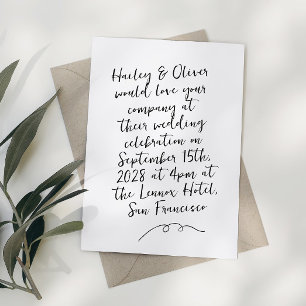 Hailey & Oliver
would love your
company at
their wedding
celebration on
September 15th,
2028 at 4pm at
the Lennox Hotel,
San Francisco